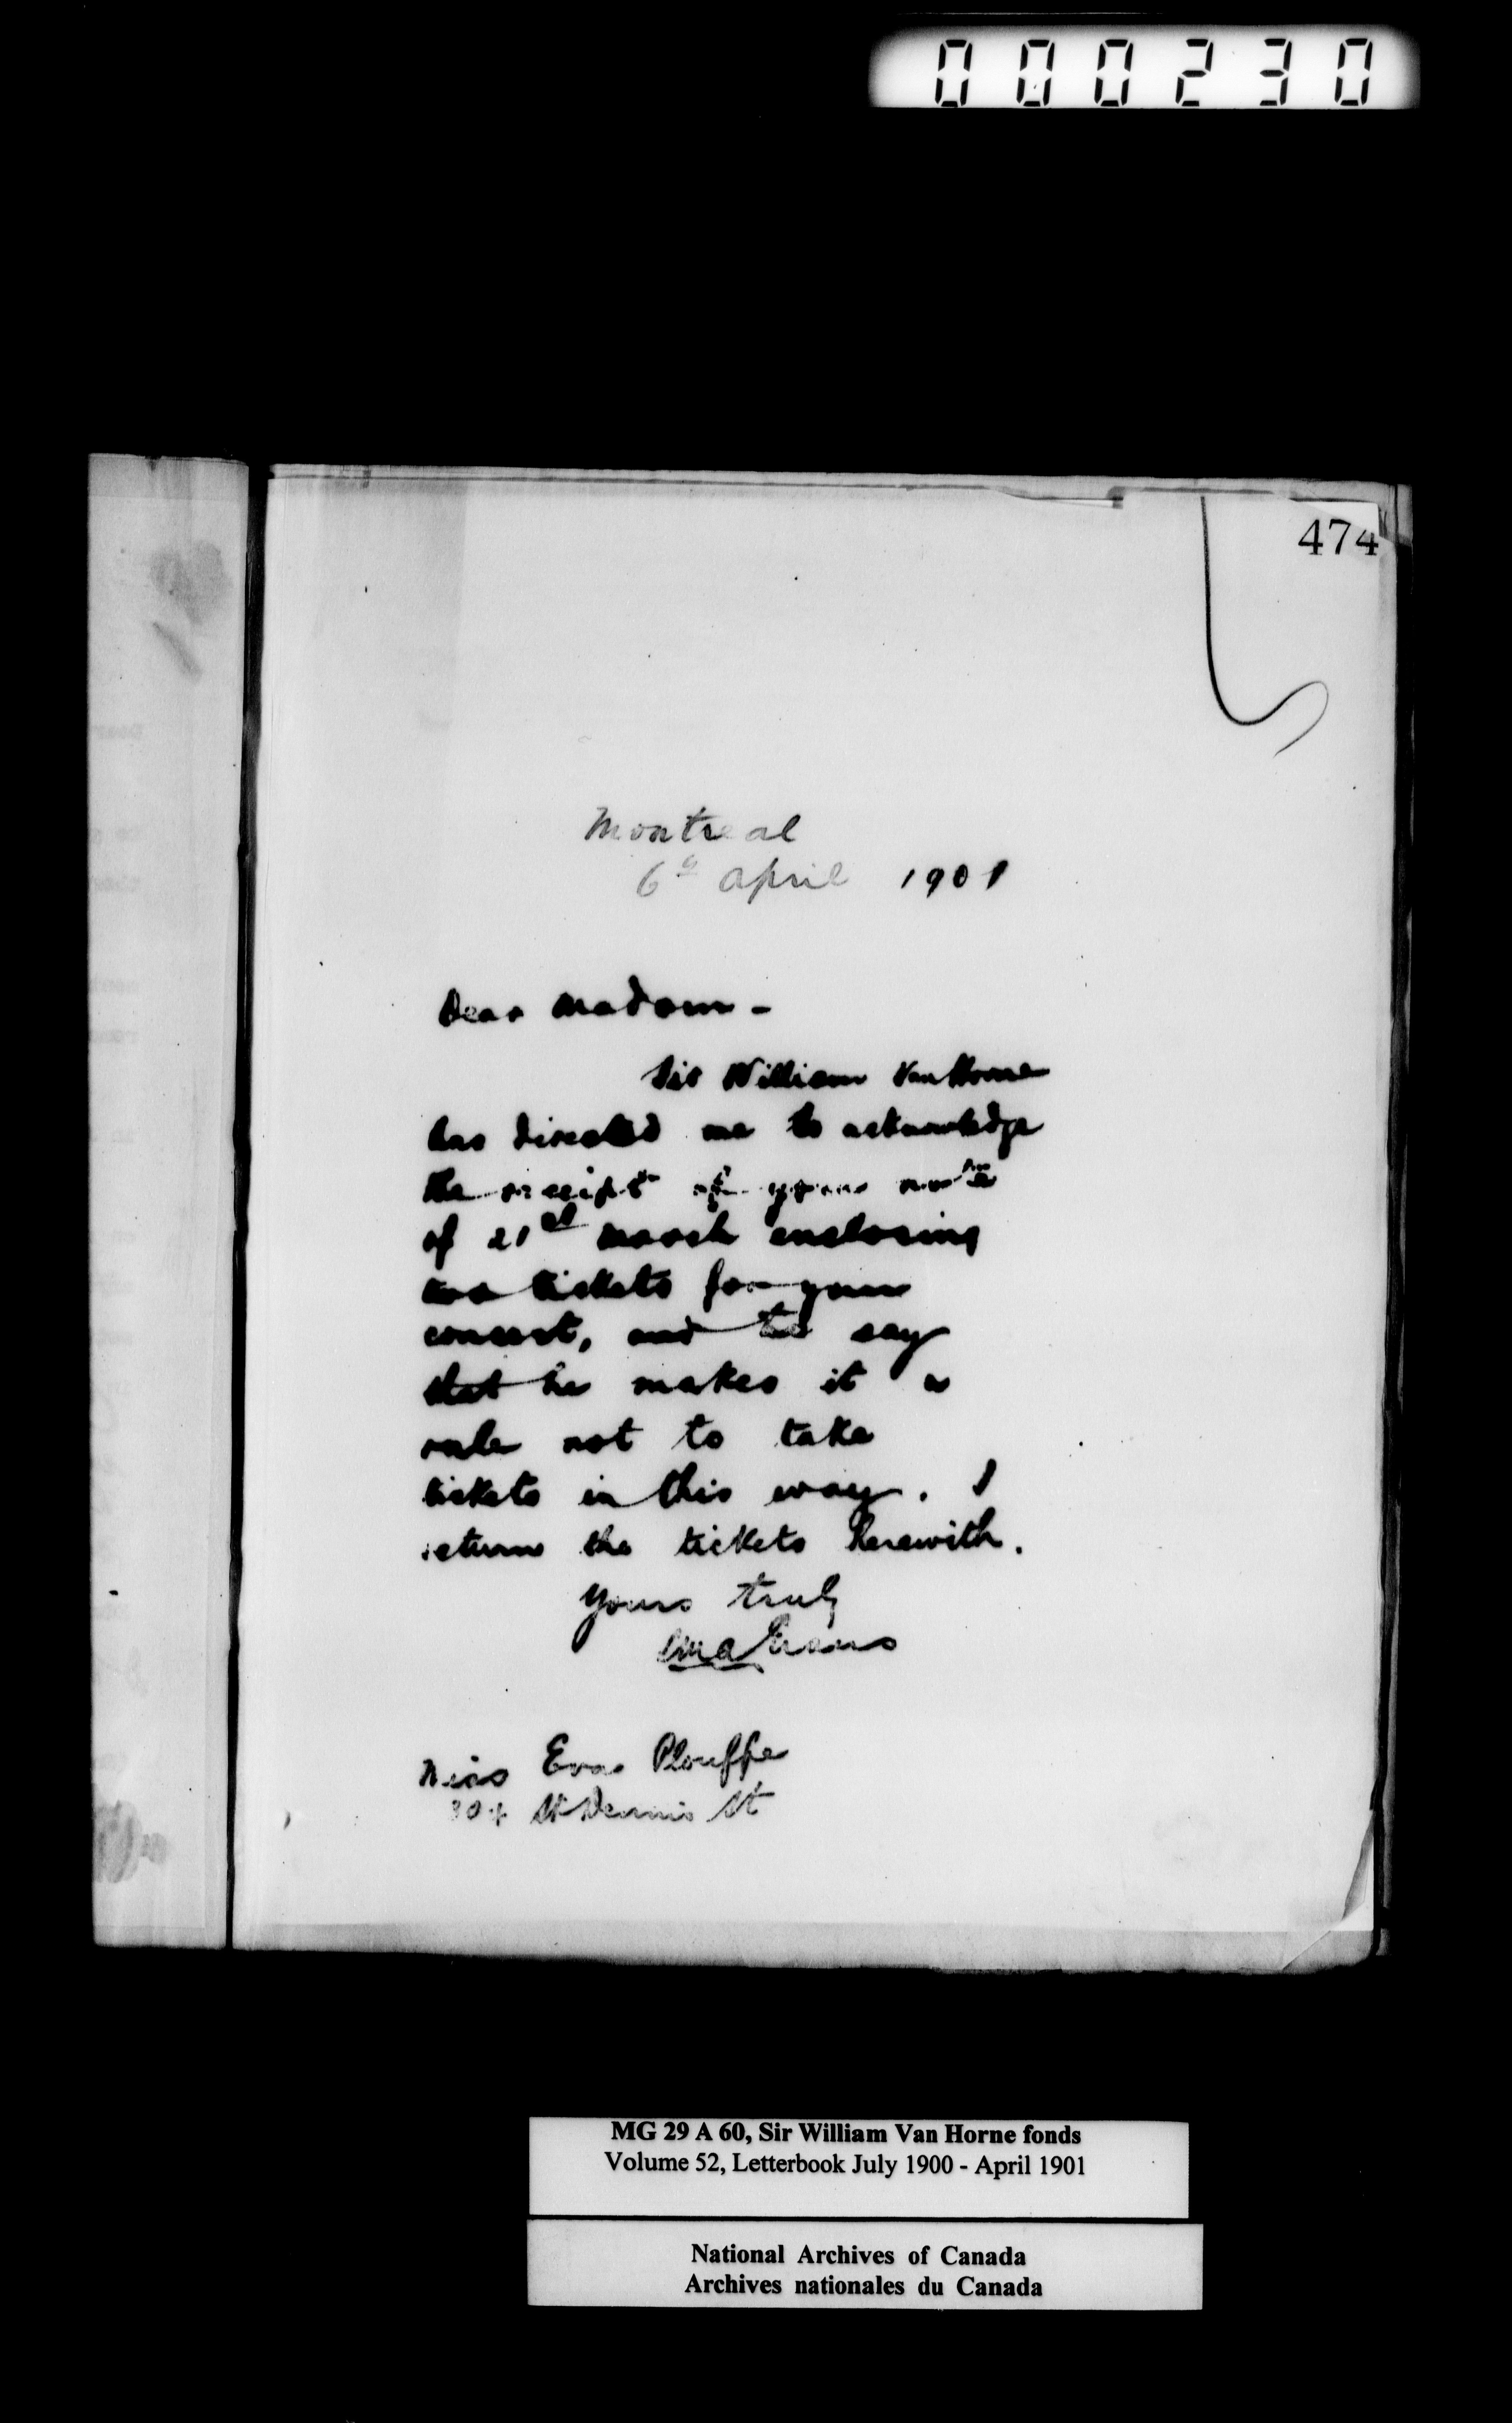 000230
474
Montreal
6th April 1901
Dear Madam -
Sir William Van Horne
has directed me to acknowledge
the receipt of your note
of 21st March enclosing
two tickets for your
concert, and to say
that he makes it a
rule not to take
tickets in this way. I
return the tickets herewith.
Yours truly
Evans
Miss Eva Plouffe
St Dennis St
MG 29 A 60, Sir William Van Horne fonds
Volume 52, Letterbook July 1900 - April 1901
National Archives of Canada
Archives nationales du Canada